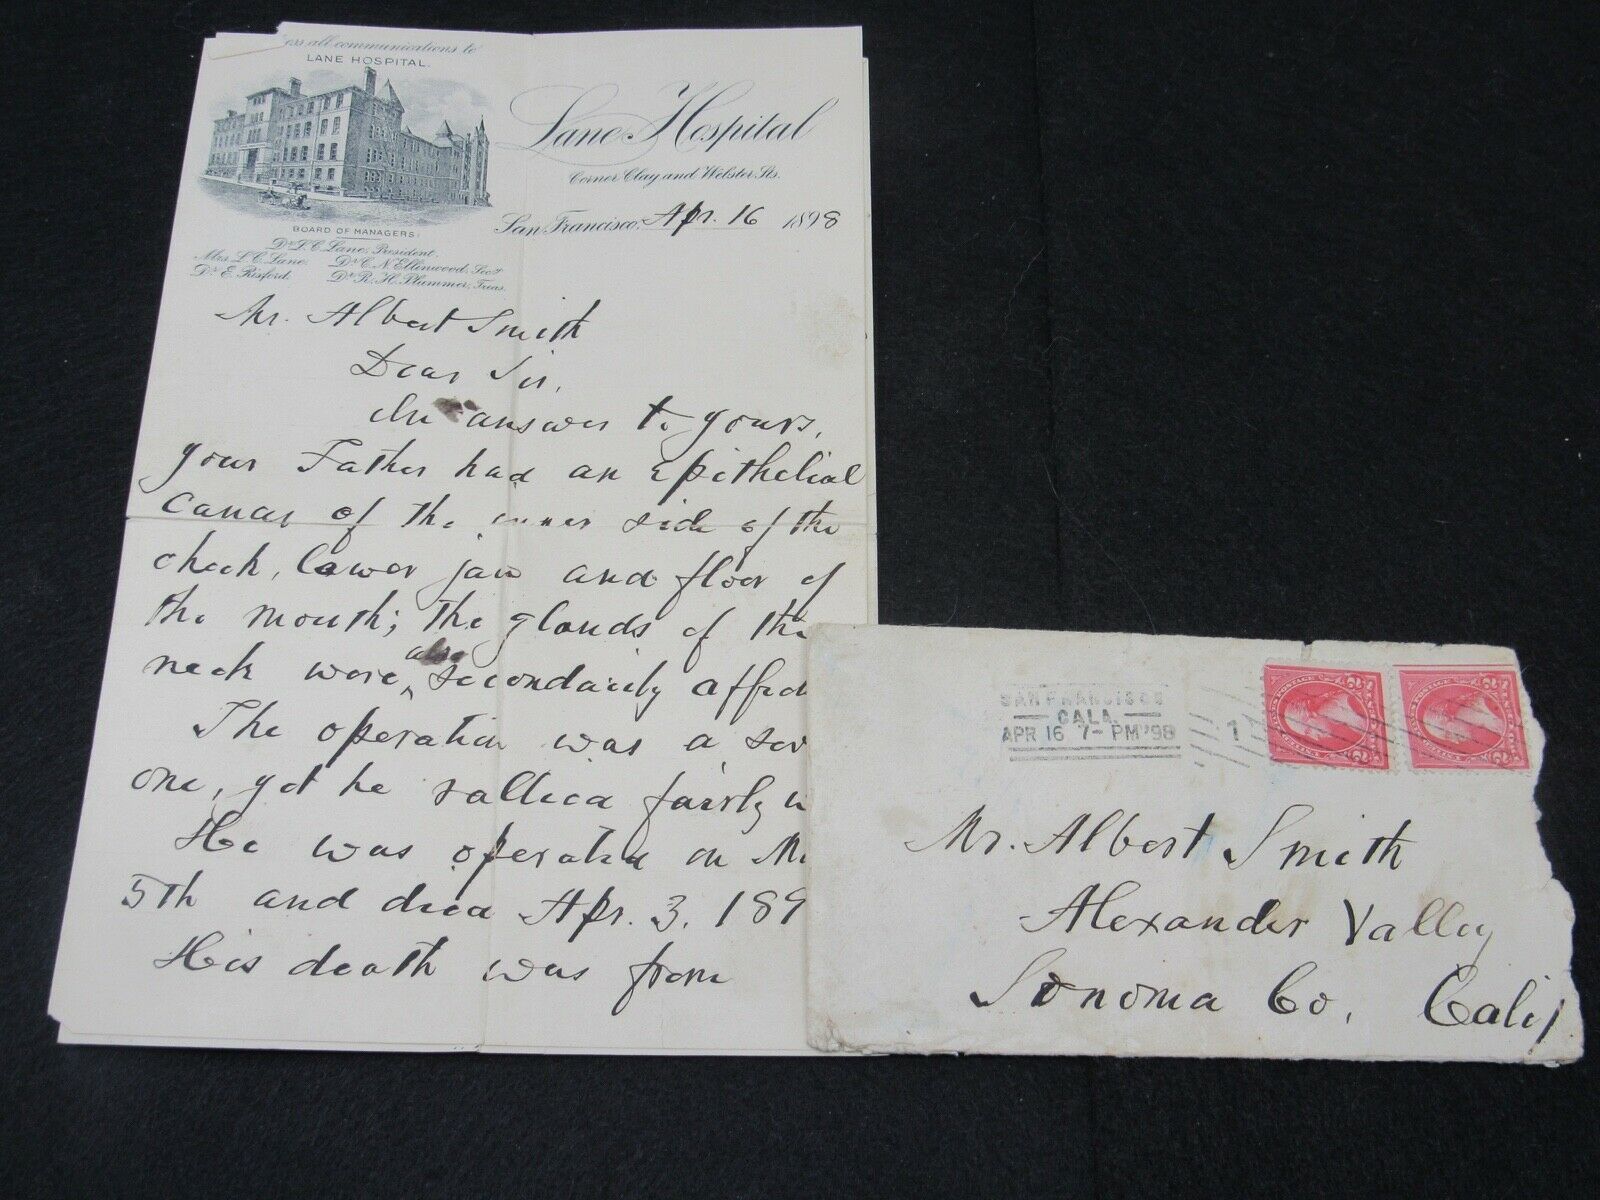 ess all communications to
LANE HOSPITAL.
Lane Hospital
Corner Clay and Webster Sts.
San Francisco, Apr. 16 1898
BOARD OF MANAGERS:
Dr. L. C. Lane, President.
Mrs. L. C. Lane. Dr. C. N. Ellinwood, Secy
Dr. E. Rixford. Dr. R. H. Plummer, Treas.
Mr. Albert Smith
Dear Sir,
In answer to yours,
your Father had an epithelial
cancer of the inner side of the
cheek, lower jaw and floor of
the mouth; the glands of the
neck were ^ also secondarily affec
The operation was a sev
one, yet he rallied fairly w
He was operated on M
5th and died Apr. 3, 189
His death was from
SAN FRANCISCO
CALA.
APR 16 7-PM '98
1
Mr. Albert Smith
Alexander Valley
Sonoma Co, Calif